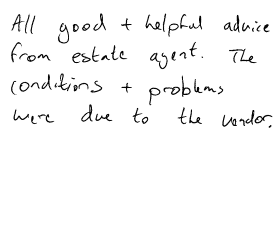 All good + helpful advice
from estate agent. The
conditions + problems
were due to the vendor.